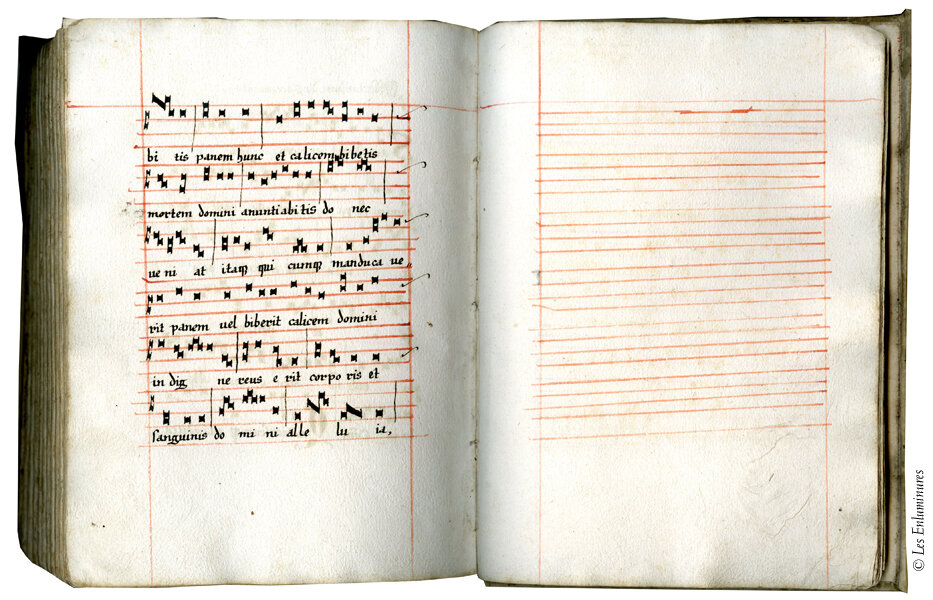 bi tis panem hunc et calicem bibetis
mortem domini anuntiabitis do nec
ueni at itaqꝫ qui cumqꝫ manduca ue
rit panem uel biberit calicem domini
in dig ne reus e rit corpo ris et
sanguinis do mi ni alle lu ia,
© Les Enluminures